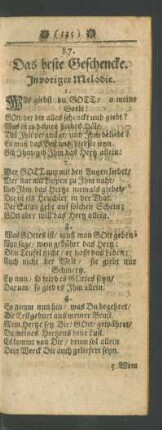 (135)
87.
Das beste Geschencke.
In voriger Melodie.
1.
Was giebst du GOTT, o meine
Seele!
GOtt der dir alles schenckt und giebt?
Was ist in deines Leibes Höle,
Das Ihm vergnügt, und Ihm beliebt?
Es muß das Best und liebste seyn.
Gib Ihm, gib Ihm das Hertz allein!
2.
Wer GOTT nur mit den Augen liebet,
Wer nur mit Beugen zu Ihm nahet,
Und Ihm das Hertze niemals giebet,
Der ist ein Heuchler in der That.
Der Satan geht auf solchen Schein;
GOtt aber will das Hertz allein.
3.
Was Gottes ist, muß man GOtt geben;
Nun sage, wem gebühret das Hertz?
Dem Teufel nicht, er haßt das Leben;
Auch nicht der Welt, sie giebt nur
Schmertz.
Ey nun, so muß es Gottes seyn,
Darum, so gieb es Ihm allein.
4.
So nimm nun hin, was Du begehret,
Die Erstgeburt aus meiner Brust.
Mein Hertze sey Dir, GOtt, gewähret,
Du meines Hertzens beste Lust.
Es kommt von Dir, drum soll allein
Dein Werck Dir auch geliefert seyn.
5. Wem